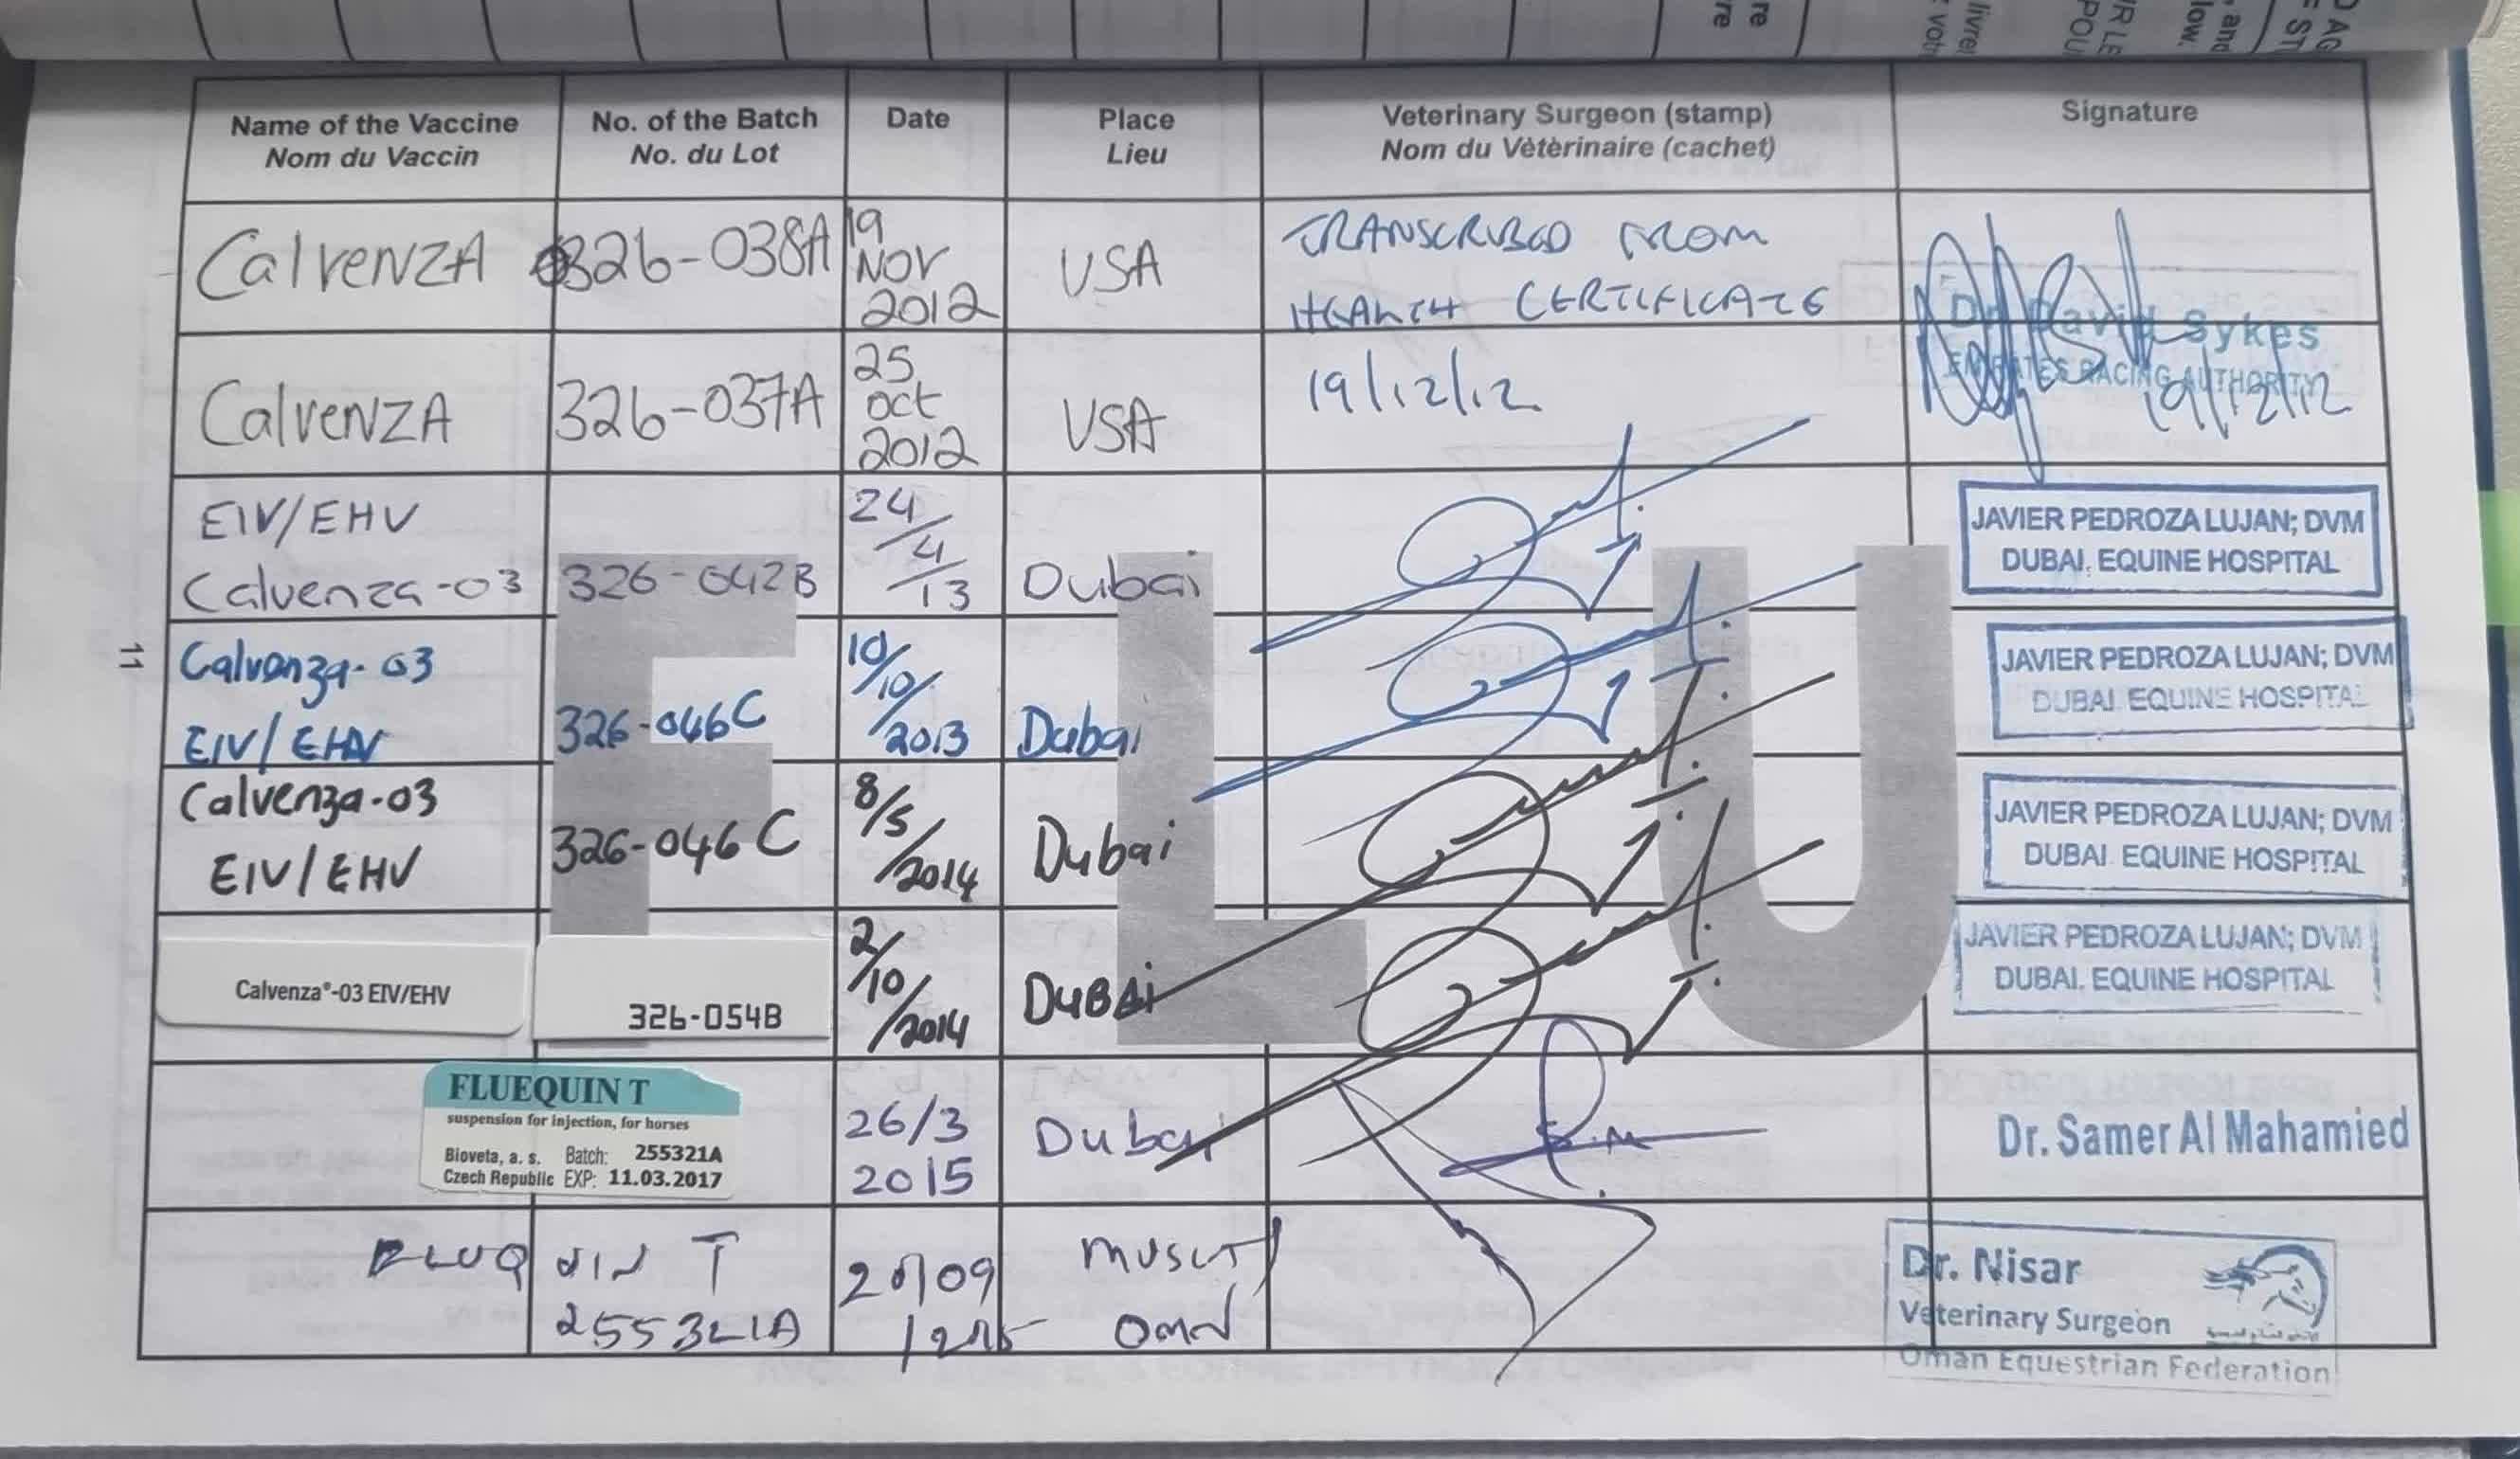 Name of the Vaccine
Nom du Vaccin
No. of the Batch
No. du Lot
Date
Place
Lieu
Veterinary Surgeon (stamp)
Nom du Vètèrinaire (cachet)
Signature
CalvenZA
326-038A
19
NOV
2012
USA
TRANSCRIBED FROM
HEALTH CERTIFICATE
Dr. David Sykes
EMIRATES RACING AUTHORITY
19/12/12
CalvenZA
326-037A
25
Oct
2012
USA
19/12/12
EIV/EHV
Calvenza-03
326-042B
24/4/13
Dubai
JAVIER PEDROZA LUJAN; DVM
DUBAI. EQUINE HOSPITAL
Calvenza-03
EIV/EHV
326-046C
10/10/2013
Dubai
JAVIER PEDROZA LUJAN; DVM
DUBAI. EQUINE HOSPITAL
Calvenza-03
EIV/EHV
326-046C
8/5/2014
Dubai
JAVIER PEDROZA LUJAN; DVM
DUBAI. EQUINE HOSPITAL
Calvenza®-03 EIV/EHV
326-054B
2/10/2014
DUBAi
JAVIER PEDROZA LUJAN; DVM
DUBAI. EQUINE HOSPITAL
FLUEQUIN T
suspension for injection, for horses
Bioveta, a. s. Batch: 255321A
Czech Republic EXP: 11.03.2017
26/3
2015
Dubai
Dr. Samer Al Mahamied
T
255321A
Dr. Nisar
Veterinary Surgeon
Oman Equestrian Federation
11
FLU